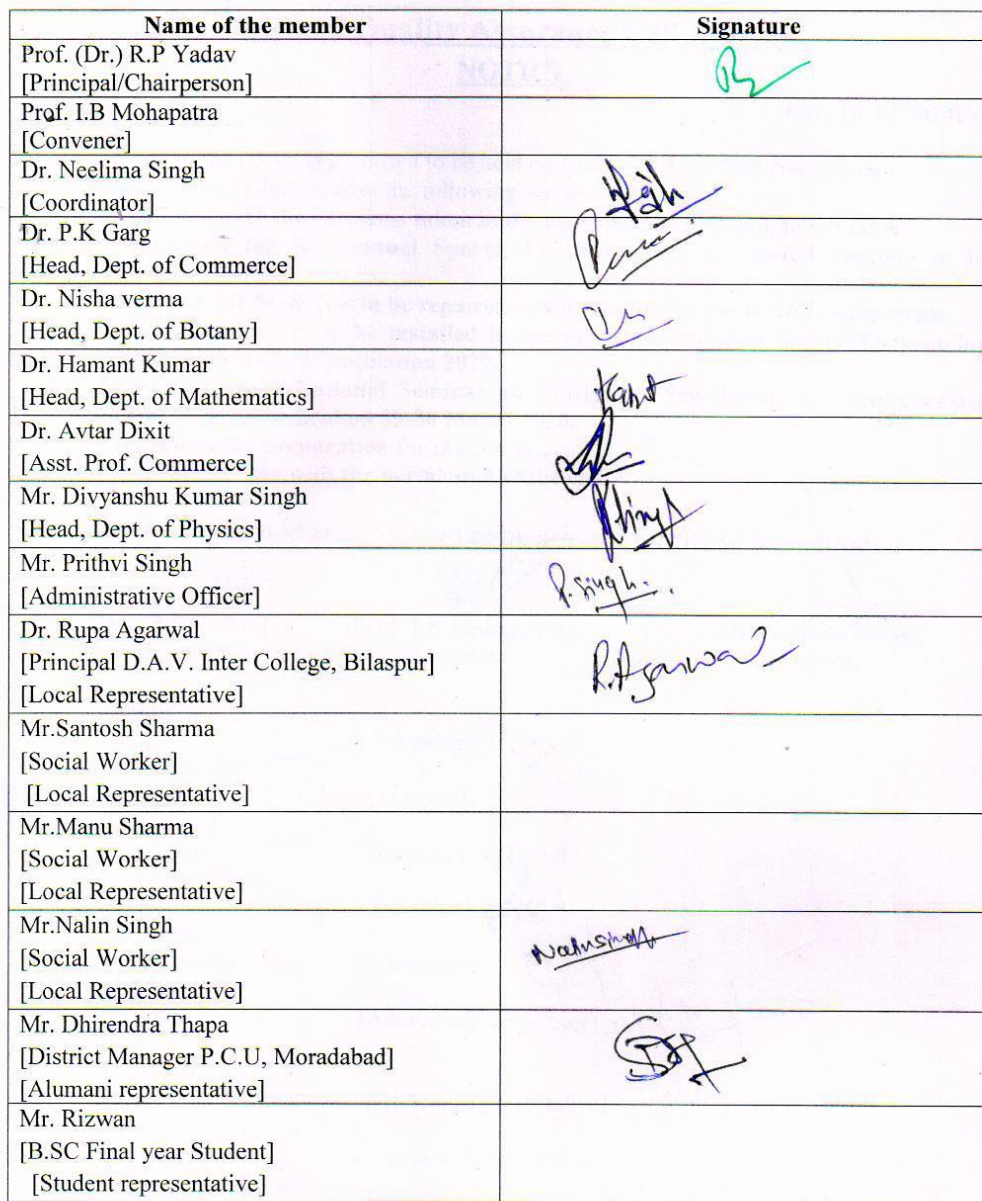 Name of the member Signature
Prof. (Dr.) R.P Yadav
[Principal/Chairperson]
Prof. I.B Mohapatra
[Convener]
Dr. Neelima Singh
[Coordinator]
Dr. P.K Garg
[Head, Dept. of Commerce]
Dr. Nisha verma
[Head, Dept. of Botany]
Dr. Hamant Kumar
[Head, Dept. of Mathematics]
Dr. Avtar Dixit
[Asst. Prof. Commerce]
Mr. Divyanshu Kumar Singh
[Head, Dept. of Physics]
Mr. Prithvi Singh
[Administrative Officer]
P. Singh.
Dr. Rupa Agarwal
[Principal D.A.V. Inter College, Bilaspur]
[Local Representative]
R. Agarwal
Mr.Santosh Sharma
[Social Worker]
[Local Representative]
Mr.Manu Sharma
[Social Worker]
[Local Representative]
Mr.Nalin Singh
[Social Worker]
[Local Representative]
Nalin Singh
Mr. Dhirendra Thapa
[District Manager P.C.U, Moradabad]
[Alumani representative]
Mr. Rizwan
[B.SC Final year Student]
[Student representative]